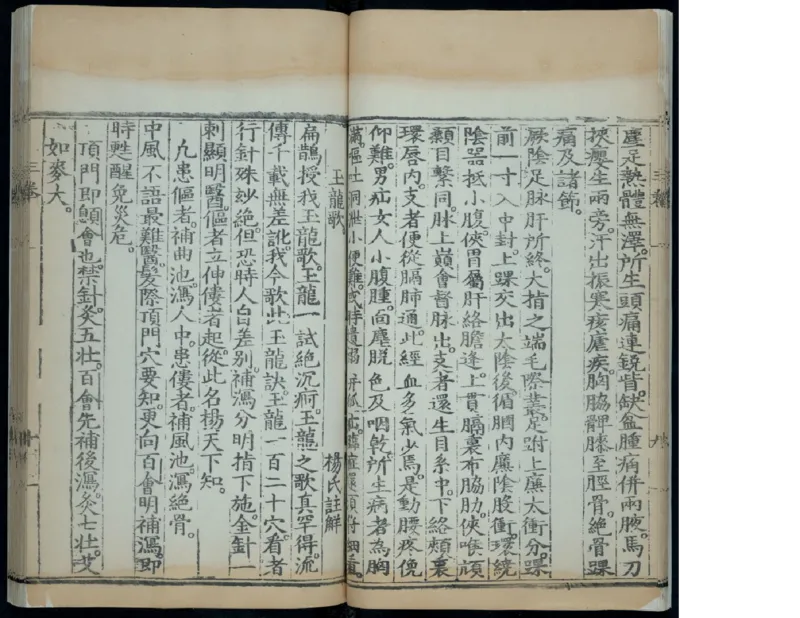 塵足熱體無澤。所生頭痛連銳眥。缺盆腫痛併兩腋。馬刀
挾癭生兩旁。汗出振寒痎瘧疾。胸脇髀膝至脛骨。絕骨踝
痛及諸節。
厥陰足脉肝所終。大指之端毛際叢。足跗上廉太衝分。踝
前一寸入中封。上踝交出太陰後。循膕內廉陰股衝。環繞
陰器抵小腹。俠胃屬肝絡膽逢。上貫膈裏布脇肋。俠喉頏
顙目繫同。脉上巔會督脉出。支者還生目系中。下絡頰裏
環唇內。支者便從膈肺通。此經血多氣少焉。是動腰疼俛
仰難。男疝女人小腹腫。面塵脫色及咽乾。所生病者為胸
滿。嘔吐洞泄小便難。或時遺溺并狐疝。臨症還須仔細看。
玉龍歌 楊氏註解
扁鵲授我玉龍歌。玉龍一試絕沉痾。玉龍之歌真罕得。流
傳千載無差訛。我今歌此玉龍訣。玉龍一百二十穴。看者
行針殊妙絕。但恐時人自差別。補瀉分明指下施。金針一
刺顯明醫。傴者立伸僂者起。從此名楊天下知。
凡患傴者。補曲池。瀉人中。患僂者。補風池。瀉絕骨。
中風不語最難醫。髮際頂門穴要知。更向百會明補瀉。即
時甦醒免災危。
頂門即顖會也。禁針。灸五壯。百會先補後瀉。灸七壯。艾
如麥大。
三卷